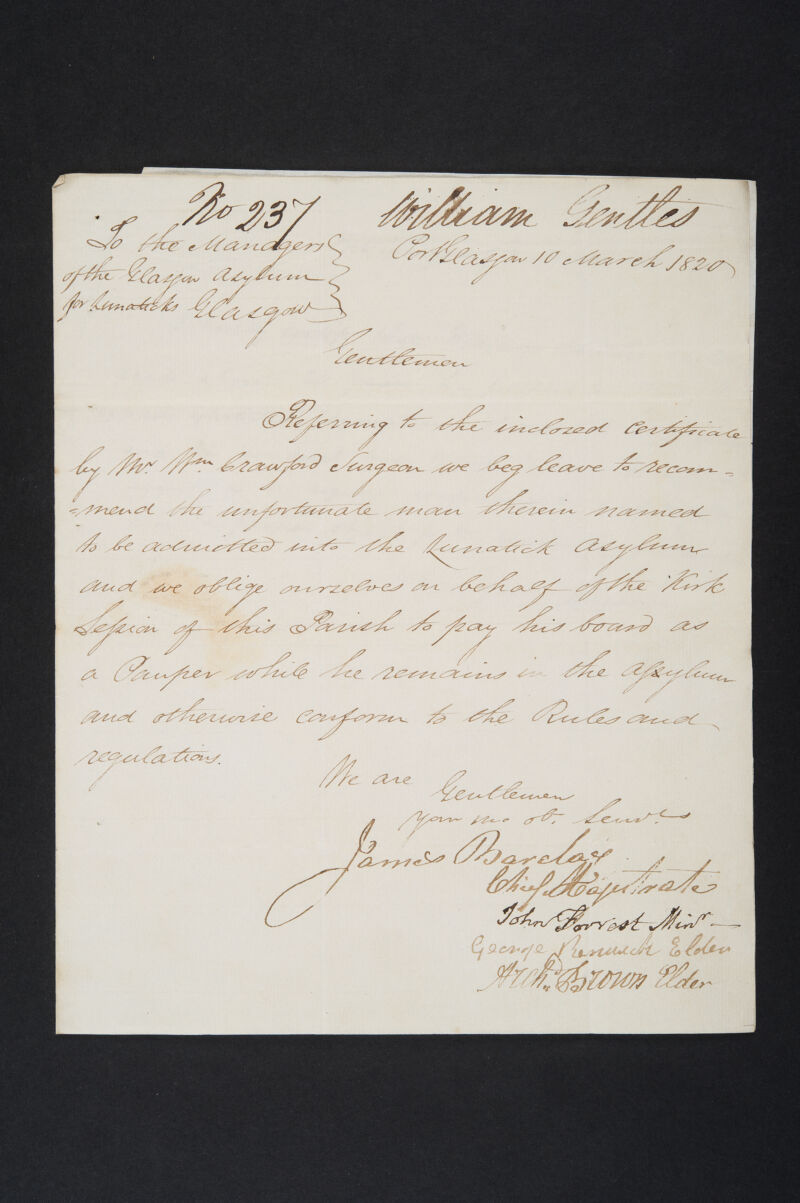 No 237 William Gentles
To the Managers
of the Glasgow Asylum
for Lunaticks Glasgow
Port Glasgow 10 March 1820
Gentlemen
Referring to the inclosed Certificate
by Mr. Wm Crawford Surgeon we beg leave to recom-
-mend the unfortunate man therein named
to be admitted into the Lunatick Asylum
and we oblige ourselves on behalf of the Kirk
Session of this Parish to pay his board as
a Pauper while he remains in the Assylum
and otherwise conform to the Rules and
regulations.
We are
Gentlemen
Your mo ob. Servts
James Barclay
Chief Magistrate
John Forrest Minr
George Renwick Elder
Archd Brown Elder